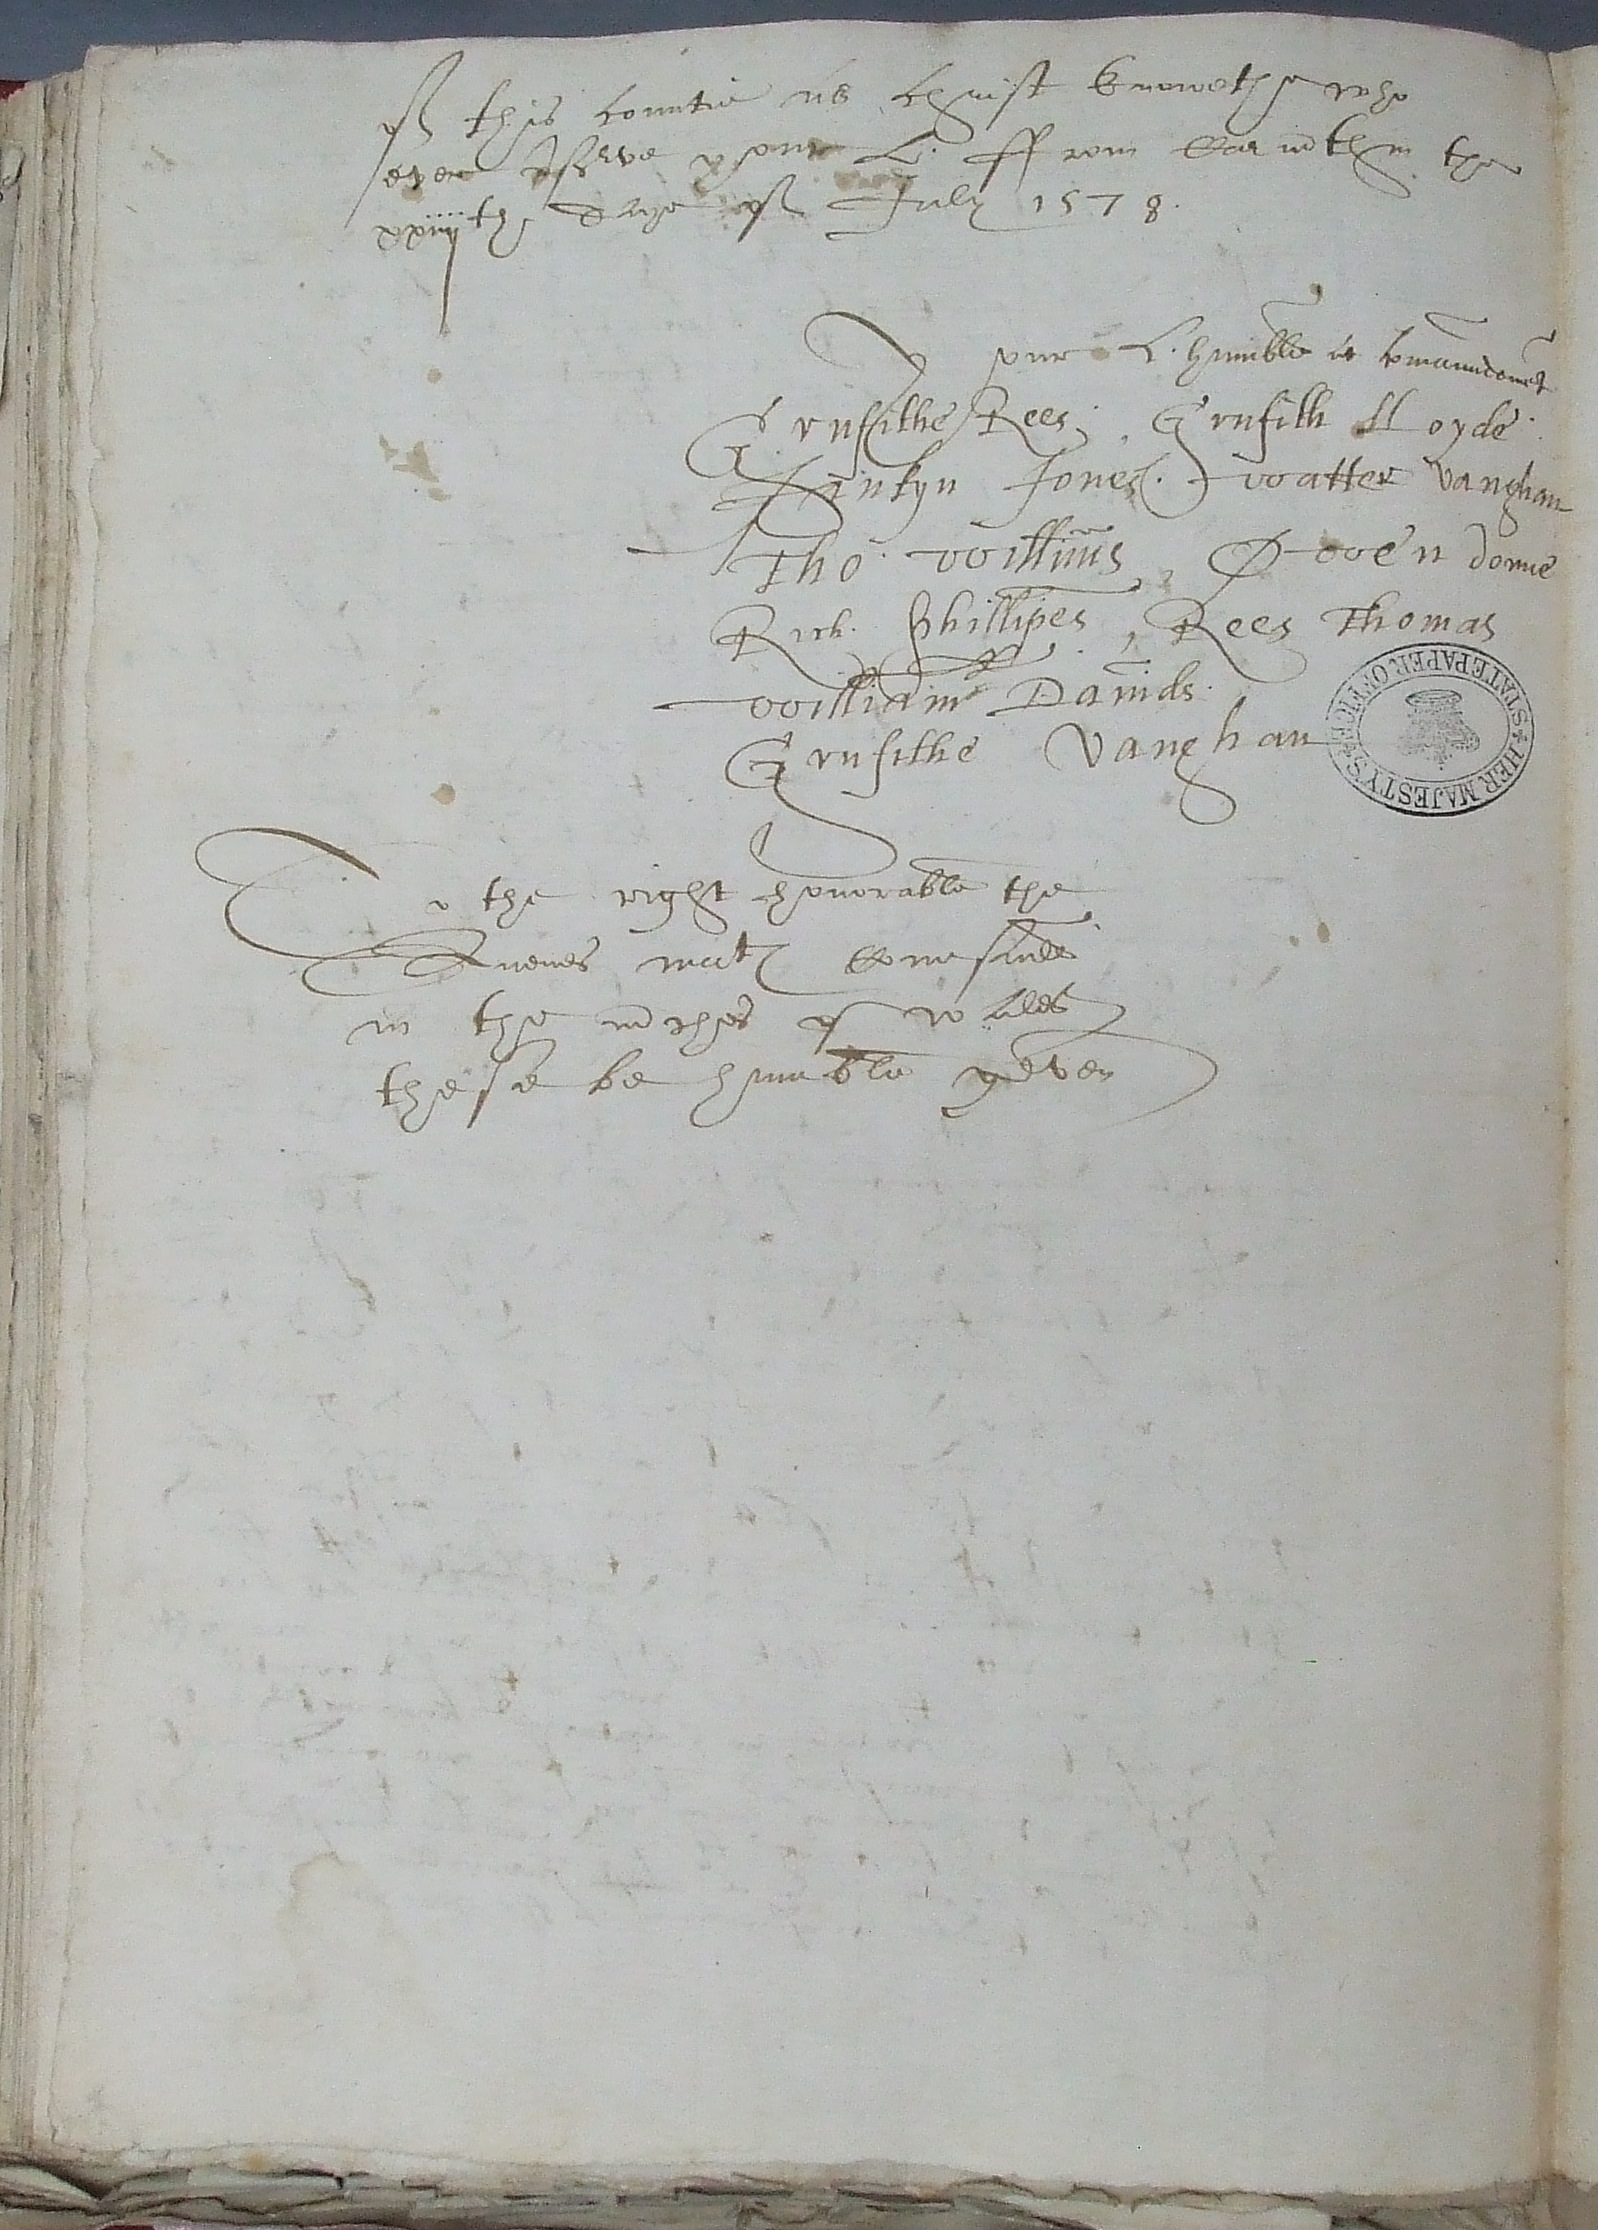 of this countie as christ knoweth who
ever p̱serve your L. ffrom Carmthin the
xxiiijth daye of July 1578.
your L. humble at comaundement
Gruffithe Rees, Gruffith lloyde
Jenkyn Jones. Walter Vaughan
Tho. Willims, Owen donne
Rich. Phillipes, Rees Thomas
William Davids.
Gruffithe Vaughan
To the right honorable the
Quenes matꝭ Counsaile
in the mrches of wales
these be humble geven
HER MAJESTY'S STATE PAPER OFFICE